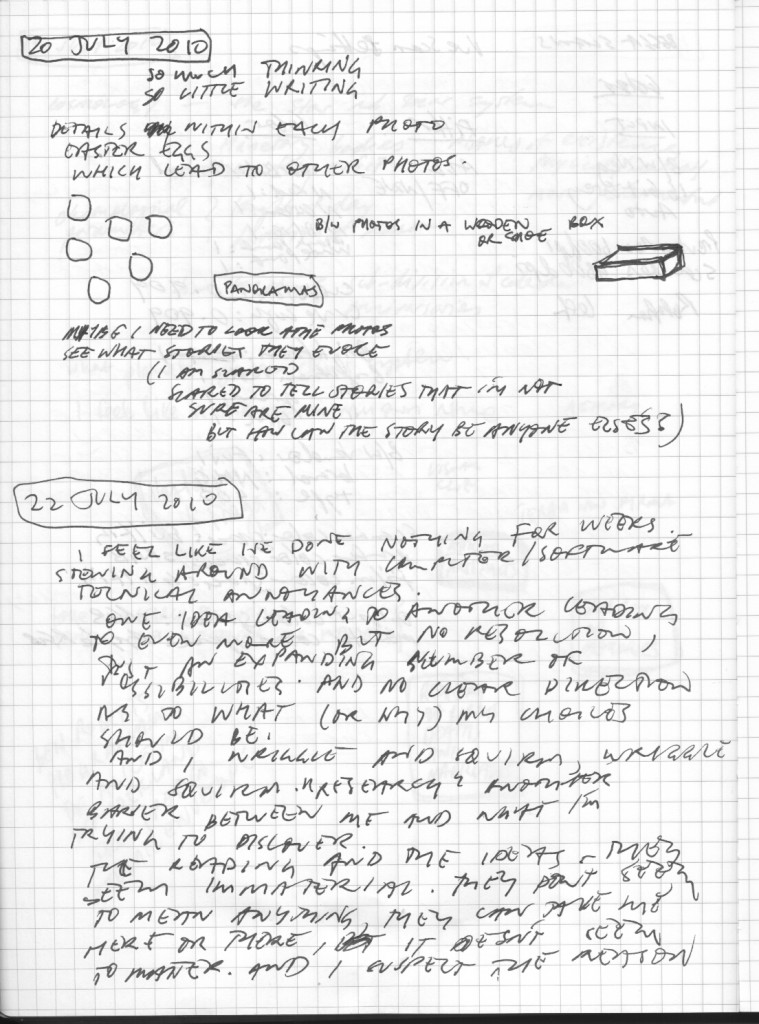 20 JULY 2010
SO MUCH THINKING
SO LITTLE WRITING
DETAILS WITHIN EACH PHOTO
EASTER EGGS
WHICH LEAD TO OTHER PHOTOS.
B/W PHOTOS IN A WOODEN BOX
OR SHOE
PANORAMAS
MAYBE I NEED TO LOOK AT THE PHOTOS
SEE WHAT STORIES THEY EVOKE
(I AM SCARED
SCARED TO TELL STORIES THAT I'M NOT
SURE ARE MINE
BUT HOW CAN THE STORY BE ANYONE ELSE'S?)
22 JULY 2010
I FEEL LIKE I'VE DONE NOTHING FOR WEEKS.
STEWING AROUND WITH COMPUTER/SOFTWARE
TECNICAL ANNOYANCES.
ONE IDEA LEADING TO ANOTHER LEADING
TO EVEN MORE BUT NO RESOLUTION,
JUST AN EXPANDING NUMBER OF
POSSIBILITIES. AND NO CLEAR DIRECTION
AS TO WHAT (OR WHY) MY CHOICES
SHOULD BE.
AND I WRIGGLE AND SQUIRM, WRIGGLE
AND SQUIRM. "RESEARCH" ANOTHER
BARIER BETWEEN ME AND WHAT I'M
TRYING TO DISCOVER.
THE READING AND THE IDEAS - THEY
SEEM IMMATERIAL. THEY DON'T SEEM
TO MEAN ANYTHING, THEY CAN TAKE ME
HERE OR THERE, IT DOESN'T SEEM
TO MATTER. AND I SUSPECT THE REASON